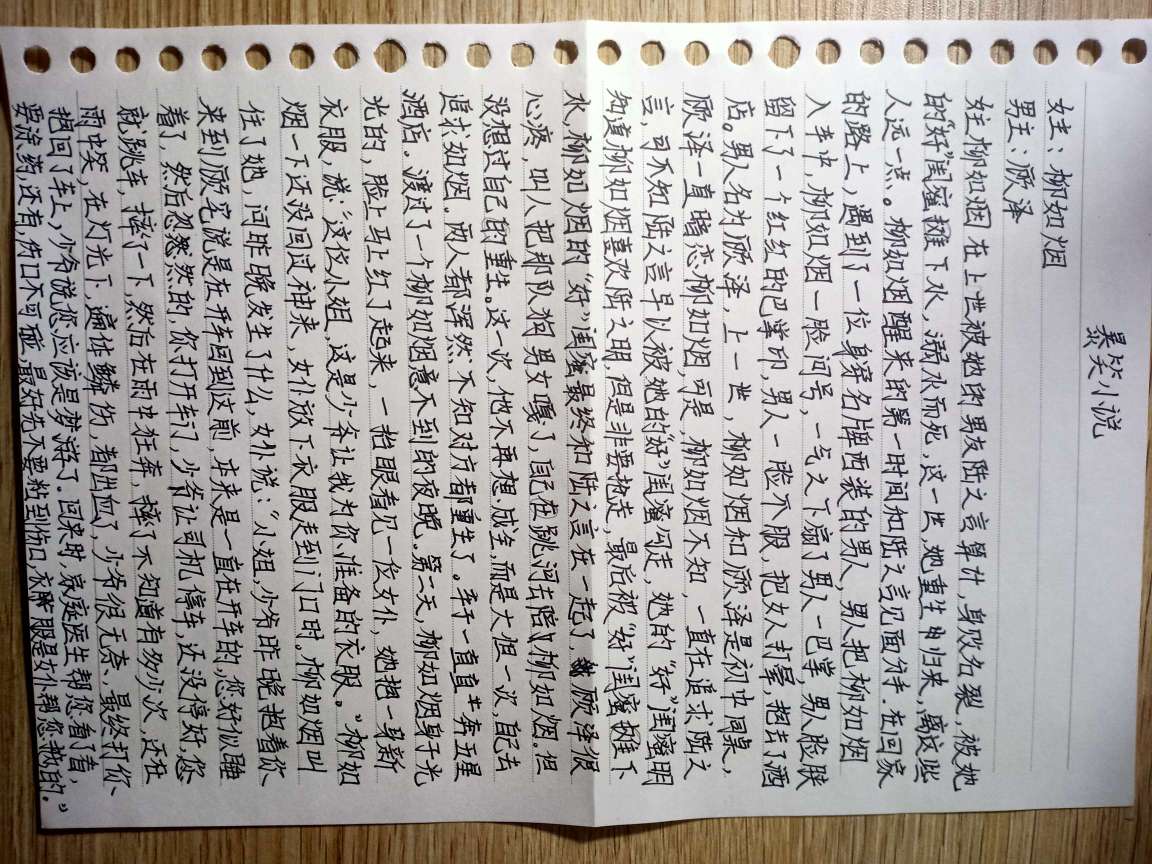 暴笑小说
女主：柳如烟
男主：顾泽
女主柳如烟在上世被她的男友陆之言算计，身败名裂，被她
的“好”闺蜜推下水，溺水而死，这一世，她重生归来，离这些
人远一点、。柳如烟醒来的第一时间和陆之言见面分手。在回家
的路上，遇到了一位身穿名牌西装的男人，男人把柳如烟
入车中，柳如烟一脸问号，一气之下扇了男人一巴掌，男人脸朕
留下了一个红红的巴掌印，男人一脸不服，把女人打晕，抱去了酒
店。男人名为顾泽，上一世，柳如烟和顾泽是初中同桌，
顾泽一直暗恋柳如烟，可是，柳如烟不知，一直在追求陆之
言，可不知陆之言早以被她的“好”闺蜜勾走，她的“好”闺蜜明
知道柳如烟喜欢陆之明，但是非要抢走，最后被“好”闺蜜推下
水，柳如烟的“好”闺蜜最终和陆之言在一起了，顾泽很
心疼，叫人把那队狗男女嘎了，自己在跳河去陪柳如烟。但
没想过自己的重生。这一次，他不再想成全，而是大但一次，自己去
追求如烟。两人都浑然不知对方都重生了。车子一直直奔五星
酒店，渡过了一个柳如烟意不到的夜晚。第二天，柳如烟身子光
光的，脸上马上红了起来，一抬眼看见一位女仆，她把一身新
衣服，说：“这位小姐，这是少爷让我为你准备的衣服。”柳如
烟一下还没回过神来，女仆放下衣服走到门口时。柳如烟叫
住了她，问昨晚发生了什么，女仆说：“小姐，少爷昨晚抱着你
来到顾宅说是在开车回到这前，本来是一直在开车的，您好似睡
着了，然后忽然然的，你打开车门，少爷让司机停车，还没停好，您
就跳车，摔了一下，然后在雨中狂奔，摔了不知道有多少次，还在
雨中哭，在灯光下，遍体鳞伤，都出血了，少爷很无奈、最终打你、
抱回了车上，少爷说，您应该是梦游了。回来时，家庭医生帮您看了看，
要涂药，还有伤口不可碰，最好先不要粘到伤口，衣服是女仆帮您换的。”